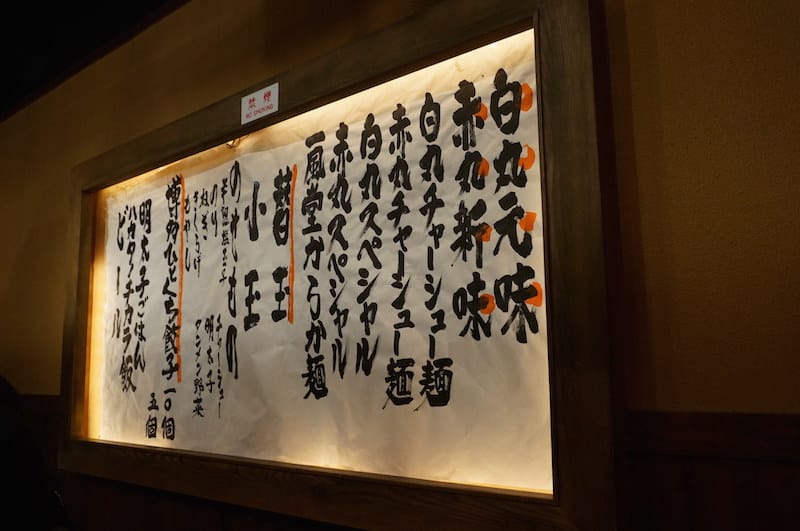 禁煙
NO SMOKING
白丸元味
赤丸新味
白丸チャーシュー麺
赤丸チャーシュー麺
白丸スペシャル
赤丸スペシャル
一風堂からか麺
替玉
小玉
のせもの
半熟塩玉子
のり
ねぎ
きくらげ
もやし
チャーシュー
明太子
博多ひとくち餃子 一〇個
五個
明太子ごはん
ハカタノチカラ飯
ビール